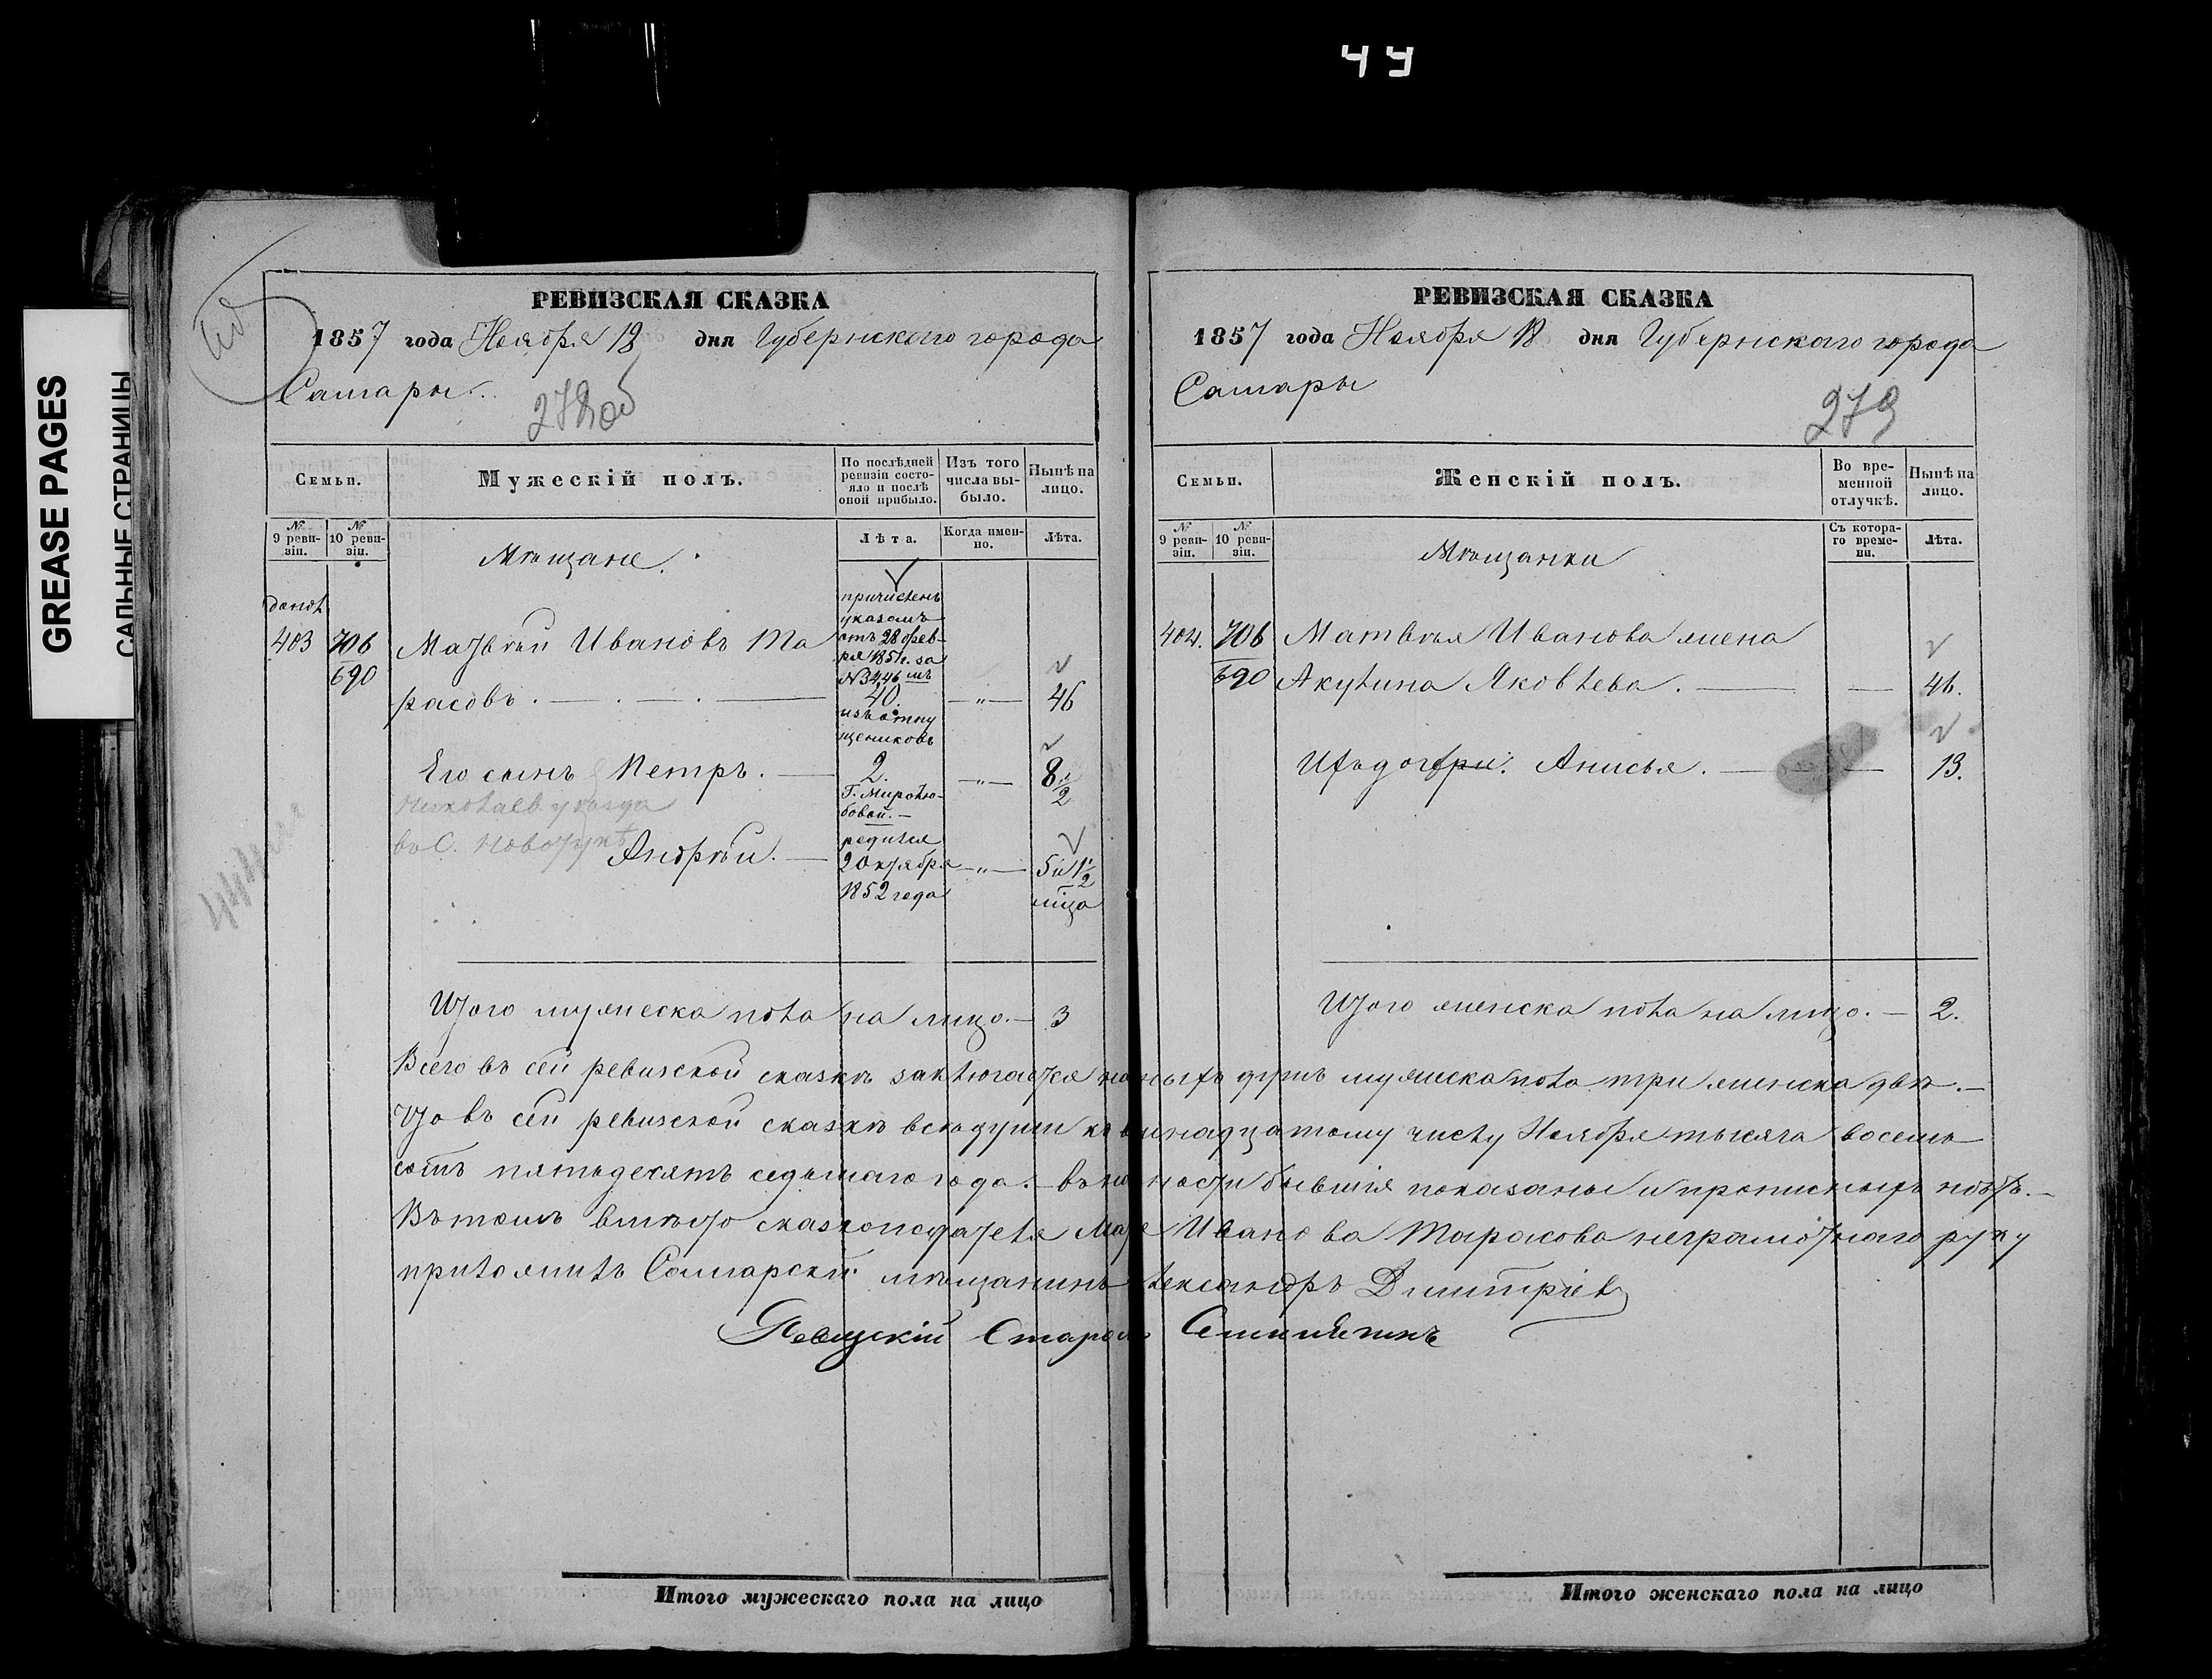 49
GREASE PAGES
САЛЬНЫЕ СТРАНИЦЫ
РЕВИЗСКАЯ СКАЗКА
1857 года Ноября 18 дня Губернскаго города
Самары.
278об
Семьи.
Мужескій полъ.
По послѣдней ревизіи состояло и послѣ оной прибыло.
Изъ того числа выбыло.
Нынѣ на лицо.
№ 9 ревизіи.
№ 10 ревизіи.
Лѣта.
Когда именно.
Лѣта.
Мѣщане.
403 706 Матвѣй Ивановъ Та
690
расовъ. 40. — " — 46
причисленъ
указомъ
отъ 28 февра
ля 1851 г. за
№ 3446 мъ
изъ отпу
щениковъ
Его сынъ Петръ. 2. — " — 8 1/2
Г. Миролю-
бовой. —
Николаев. уѣзда
Андрѣй. — " — 5 и 1 1/2
мца
родился
2 октября
1852 года
Итого мужеска пола на лицо. — 3
РЕВИЗСКАЯ СКАЗКА
1857 года Ноября 18 дня Губернскаго города
Самары
279
Семьи.
Женскій полъ.
Во временной отлучкѣ.
Нынѣ на лицо.
№ 9 ревизіи.
№ 10 ревизіи.
Съ котораго времени.
Лѣта.
Мѣщанки
404. 706 Матвѣя Иванова жена
690 Акулина Яковлева. — — 46.
Ихъ дочери. Анисья. — — 13.
Итого женска пола на лицо. — 2.
Всего въ сей ревизской сказкѣ заключается наличныхъ душъ мужеска пола три женска двѣ. —
Что въ сей ревизской сказкѣ всѣ души къ осмнадцатому числу Ноября тысяча восемь
сотъ пятьдесятъ седьмаго года. — въ наличности бывшія показаны и прописныхъ нѣтъ. —
Въ томъ вмѣсто сказкоподателя Матвея Иванова Тарасова неграмотнаго руку
приложилъ Самарскій мѣщанинъ Александръ Дмитріевъ
Староста
Итого мужескаго пола на лицо
Итого женскаго пола на лицо